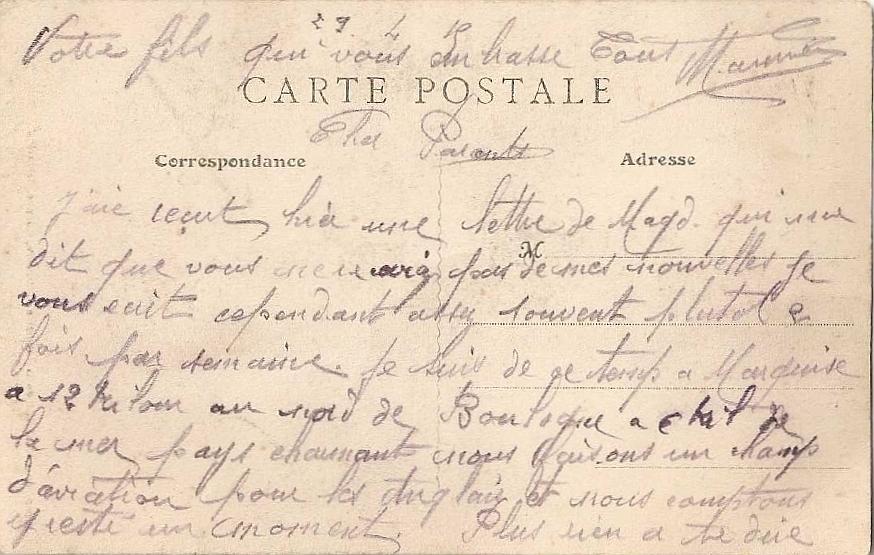 29 4 15
Votre fils qui vous embrasse Tous
CARTE POSTALE
Cher Parents
Correspondance Adresse
J'aie reçut hier une lettre de Magd. qui me
M
dit que vous pas de mes nouvelles je
vous écrit cependant assez souvent plutot 2
fois par semaine. Je suis de ce temp a Marquise
a 12 kilom au nord de Boulogne a 6 kil de
la mer pays charmant nous faisons un champ
d'aviation pour les Anglais et nous comptons
y resté un moment. Plus rien a te dire